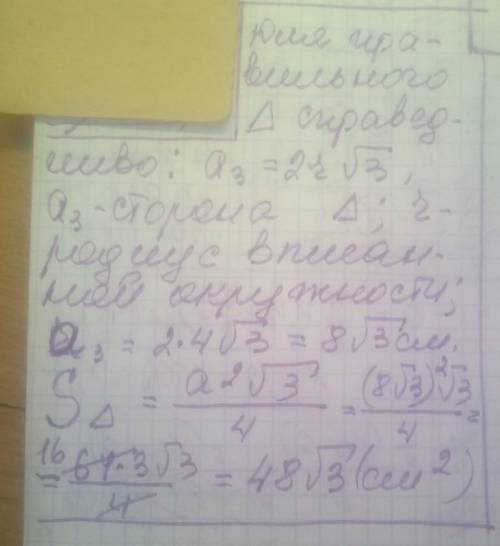 для пра-
вильного
Δ справед-
ливо: a₃ = 2r√3,
a₃-сторона Δ; r-
радиус вписан-
ной окружности;
a₃ = 2·4√3 = 8√3 см.
S_Δ = a²√3/4 = (8√3)²√3/4 =
= 64·3√3/4 = 48√3 (см²)
16